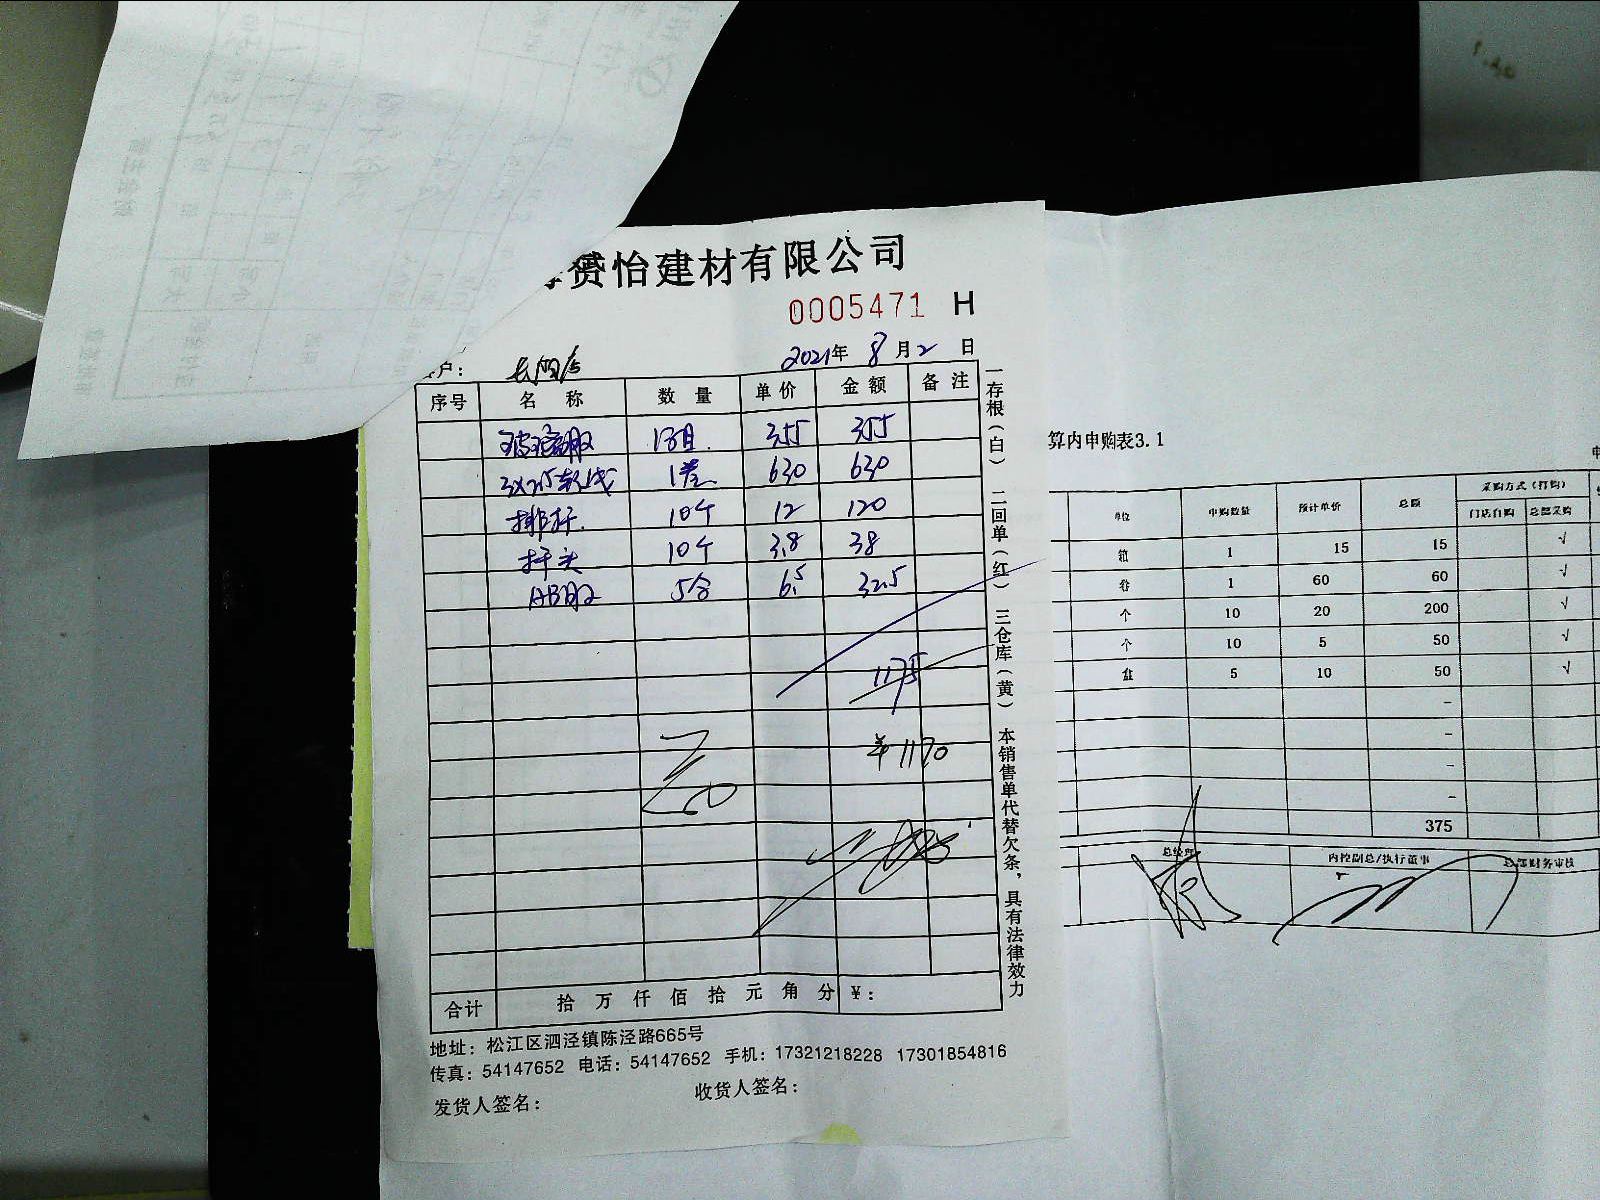 赟怡建材有限公司
0005471 H
户：
2021年 8月2日
序号 名称 数量 单价 金额 备注
玻璃胶 1箱 355 355
3×2.5软线 1卷 630 630
排杆 10个 12 120
杆头 10个 3.8 38
AB胶 5合 6.5 32.5
1175
¥1170
合计 拾 万 仟 佰 拾 元 角 分 ¥：
地址：松江区泗泾镇陈泾路665号
传真：54147652 电话：54147652 手机：17321218228 17301854816
发货人签名： 收货人签名：
一存根（白） 二回单（红） 三仓库（黄） 本销售单代替欠条，具有法律效力
算内申购表3.1
单位 申购数量 预计单价 总额 采购方式（打钩）
门店自购 总部采购
箱 1 15 15 √
卷 1 60 60 √
个 10 20 200 √
个 10 5 50 √
盒 5 10 50 √
-
-
-
-
375
总经理 内控副总/执行董事 总部财务审核